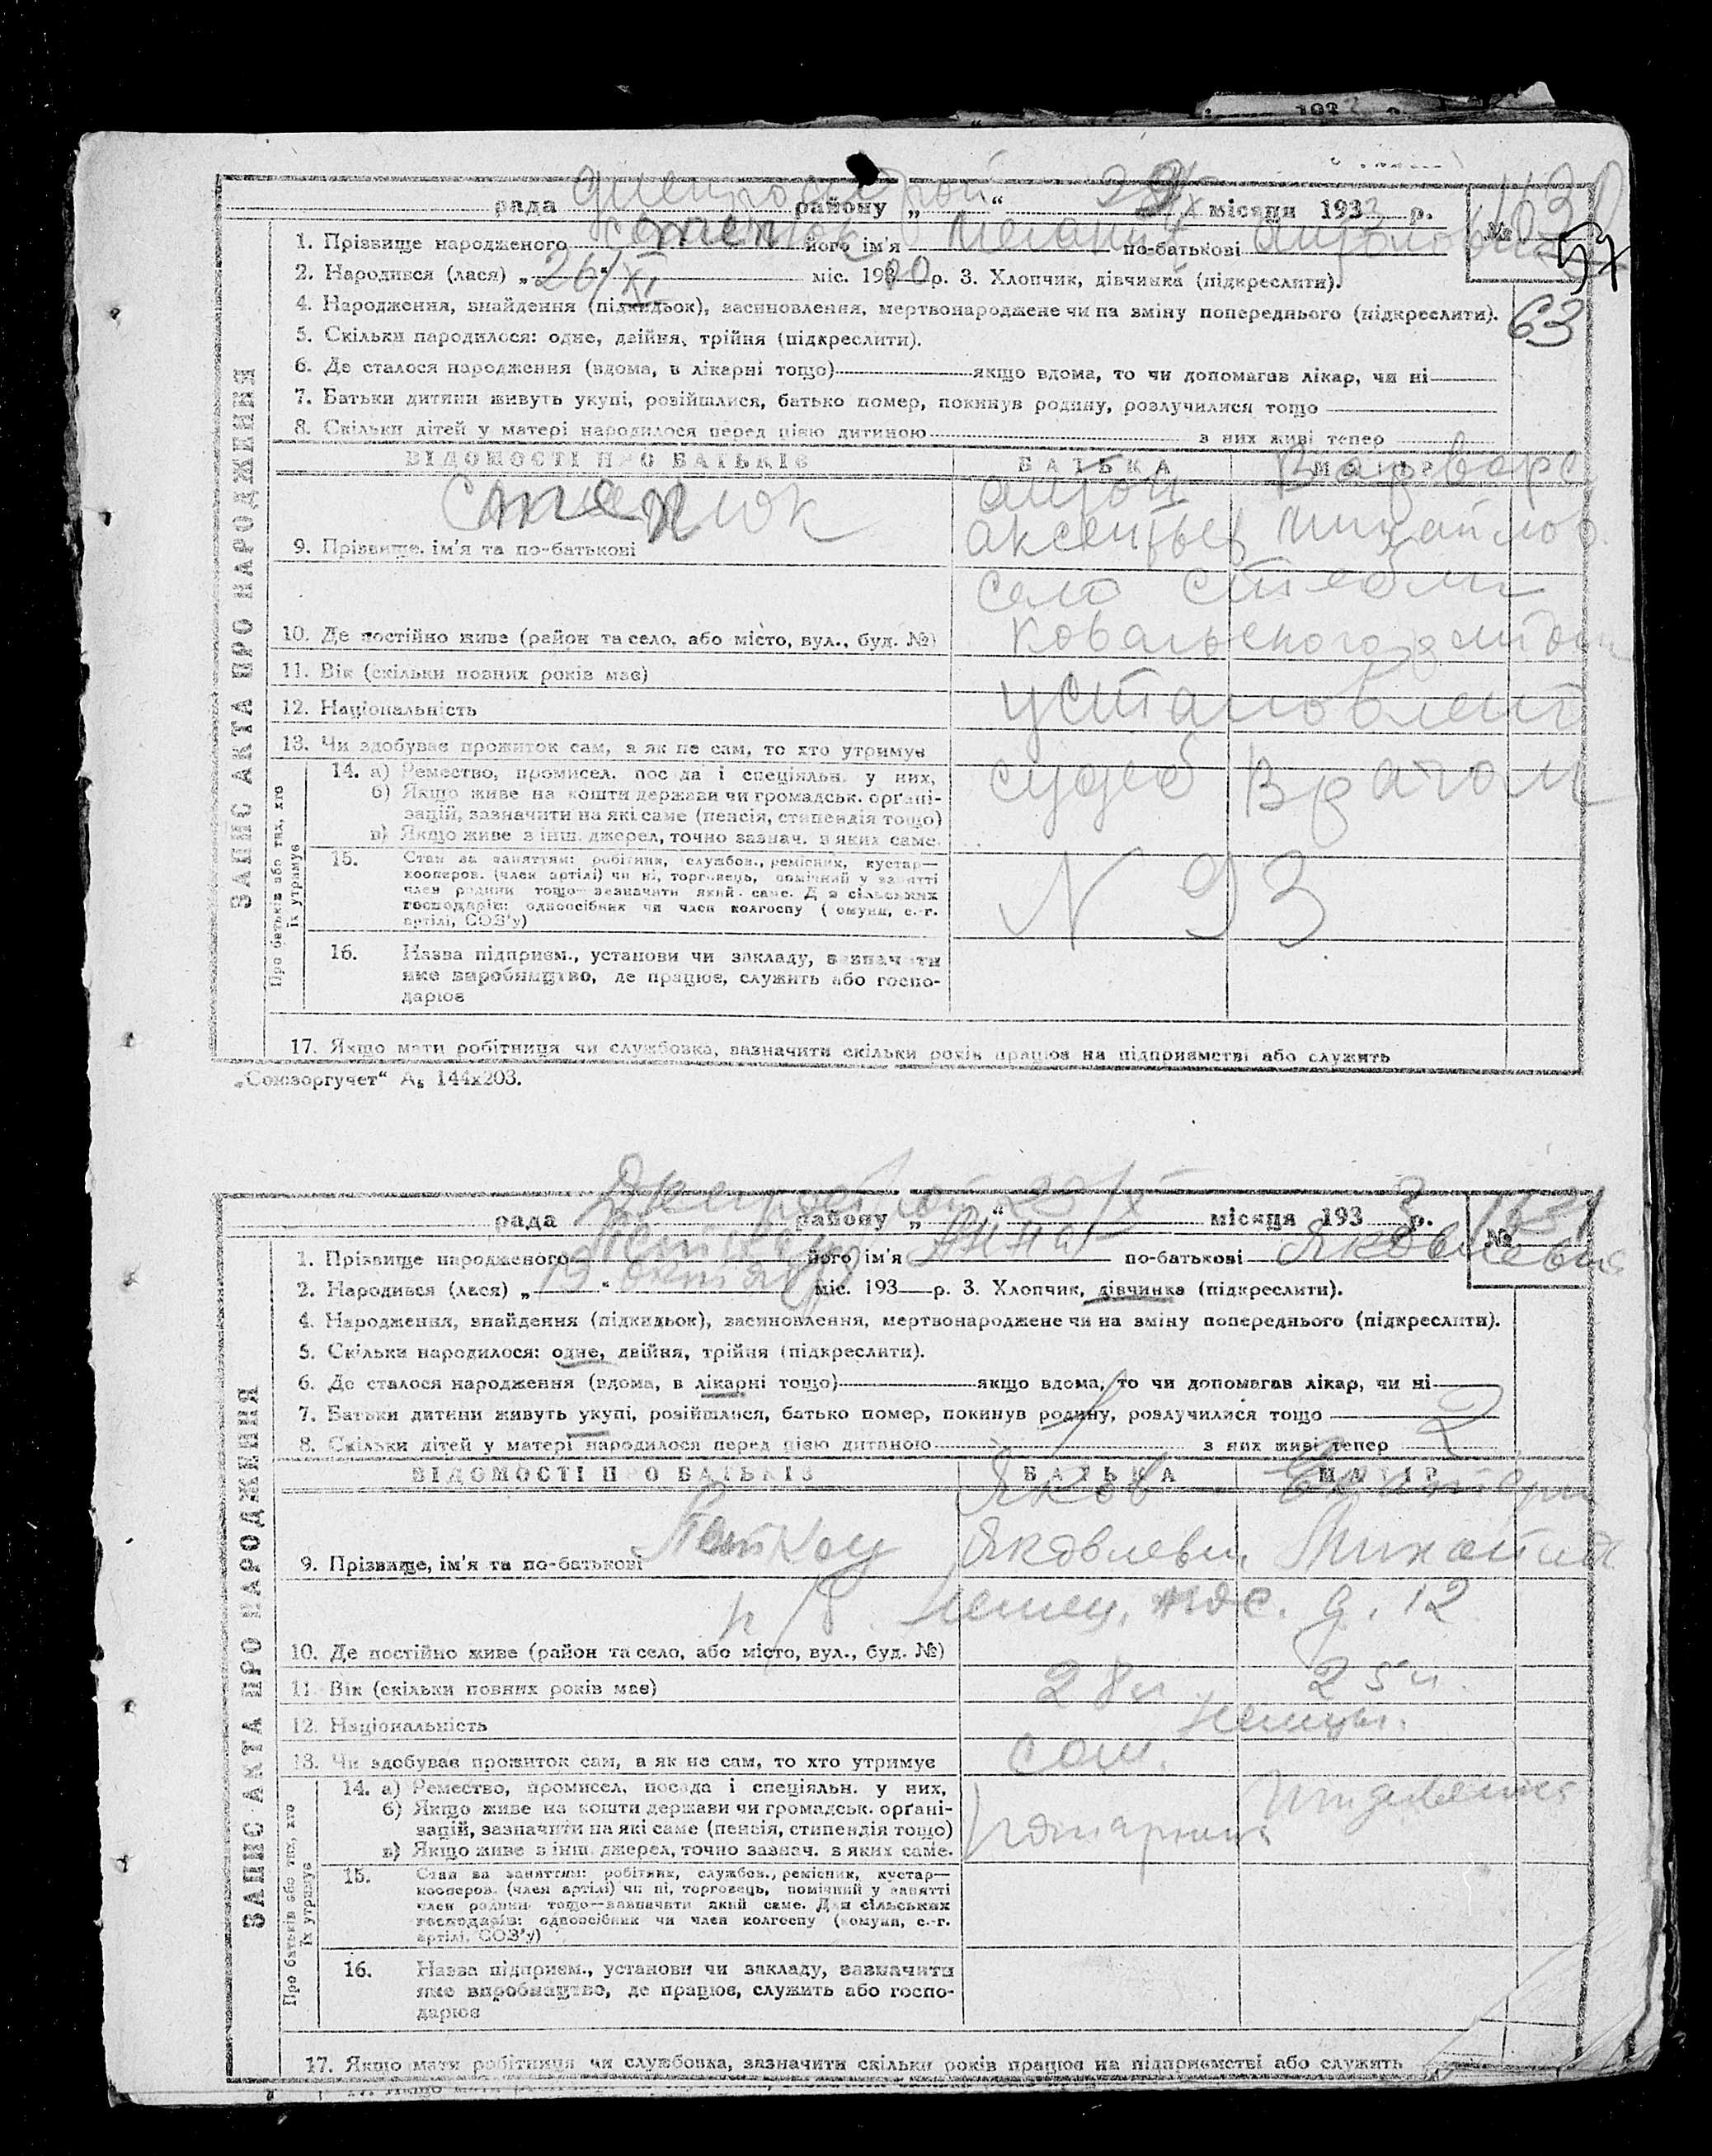 рада Днепрострой району „ “ 29/X місяця 1933 р. №
1. Прізвище народженого Степнюк його ім'я по-батькові
2. Народився (лася) „26/XI“ міс. 1900 р. 3. Хлопчик, дівчинка (підкреслити).
4. Народження, знайдення (підкидьок), засиновлення, мертвонароджене чи на зміну попереднього (підкреслити). 63
5. Скільки народилося: одне, двійня, трійня (підкреслити).
6. Де сталося народження (вдома, в лікарні тощо) якщо вдома, то чи допомагав лікар, чи ні
7. Батьки дитини живуть укупі, розійшлися, батько помер, покинув родину, розлучилися тощо
8. Скільки дітей у матері народилося перед цією дитиною з них живі тепер
ЗАПИС АКТА ПРО НАРОДЖЕННЯ
ВІДОМОСТІ ПРО БАТЬКІВ БАТЬКА МАТІР
Степнюк Антон Варвара
9. Прізвище, ім'я та по-батькові Аксентьев Михайлов.
село Стебли
10. Де постійно живе (район та село, або місто, вул., буд. №) Ковальского
11. Вік (скільки повних років має)
12. Національність установлено
13. Чи здобуває прожиток сам, а як не сам, то хто утримує
Про батьків або тих, хто їх утримує
14. а) Ремество, промисел, посада і спеціяльн. у них, судеб врачом
б) Якщо живе на кошти держави чи громадськ. орґані-
зацій, зазначити на які саме (пенсія, стипендія тощо)
в) Якщо живе з інш. джерел, точно зазнач. з яких саме.
15. Стан за заняттям: робітник, службов., ремісник, кустар—
кооперов. (член артілі) чи ні, торговець, помічний у занятті
член родини тощо—зазначити який саме. Для сільських
господарів: одноосібник чи член колгоспу (комуни, с.-г.
артілі, СОЗ'у)
N 93
16. Назва підприєм., установи чи закладу, зазначити
яке виробництво, де працює, служить або госпо-
дарює
17. Якщо мати робітниця чи службовка, зазначити скільки років працює на підприємстві або служить
„Союзоргучет“ А₅ 144х203.
рада Днепрострой району „ “ місяця 1933 р. №
1. Прізвище народженого його ім'я Анна по-батькові Яковлевна
2. Народився (лася) „19“ октября міс. 193 р. 3. Хлопчик, дівчинка (підкреслити).
4. Народження, знайдення (підкидьок), засиновлення, мертвонароджене чи на зміну попереднього (підкреслити).
5. Скільки народилося: одне, двійня, трійня (підкреслити).
6. Де сталося народження (вдома, в лікарні тощо) якщо вдома, то чи допомагав лікар, чи ні
7. Батьки дитини живуть укупі, розійшлися, батько помер, покинув родину, розлучилися тощо
8. Скільки дітей у матері народилося перед цією дитиною з них живі тепер 2
ЗАПИС АКТА ПРО НАРОДЖЕННЯ
ВІДОМОСТІ ПРО БАТЬКІВ БАТЬКА МАТІР
Яков Екатери
9. Прізвище, ім'я та по-батькові Яковлевич
д. 12
10. Де постійно живе (район та село, або місто, вул., буд. №)
11. Вік (скільки повних років має) 28 л. 25 л.
12. Національність немцы.
13. Чи здобуває прожиток сам, а як не сам, то хто утримує сам.
Про батьків або тих, хто їх утримує
14. а) Ремество, промисел, посада і спеціяльн. у них, иждивение
б) Якщо живе на кошти держави чи громадськ. орґані-
зацій, зазначити на які саме (пенсія, стипендія тощо)
в) Якщо живе з інш. джерел, точно зазнач. з яких саме.
15. Стан за заняттям: робітник, службов., ремісник, кустар—
кооперов. (член артілі) чи ні, торговець, помічний у занятті
член родини тощо—зазначити який саме. Для сільських
господарів: одноосібник чи член колгоспу (комуни, с.-г.
артілі, СОЗ'у)
16. Назва підприєм., установи чи закладу, зазначити
яке виробництво, де працює, служить або госпо-
дарює
17. Якщо мати робітниця чи службовка, зазначити скільки років працює на підприємстві або служить